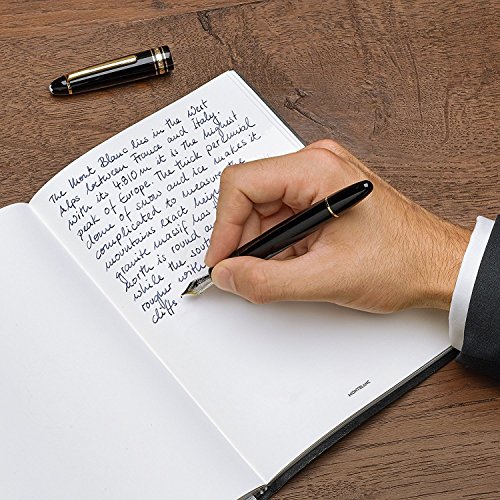 The Mont Blanc lies in the West
Alps between France and Italy.
With its 4.810 m it is the highest
peak of Europe. The thick perennial
dome of snow and ice makes it
complicated to measure the
mountains exact
granite massif has
north is round a
while the sout
rougher with
cliffs
MONTBLANC